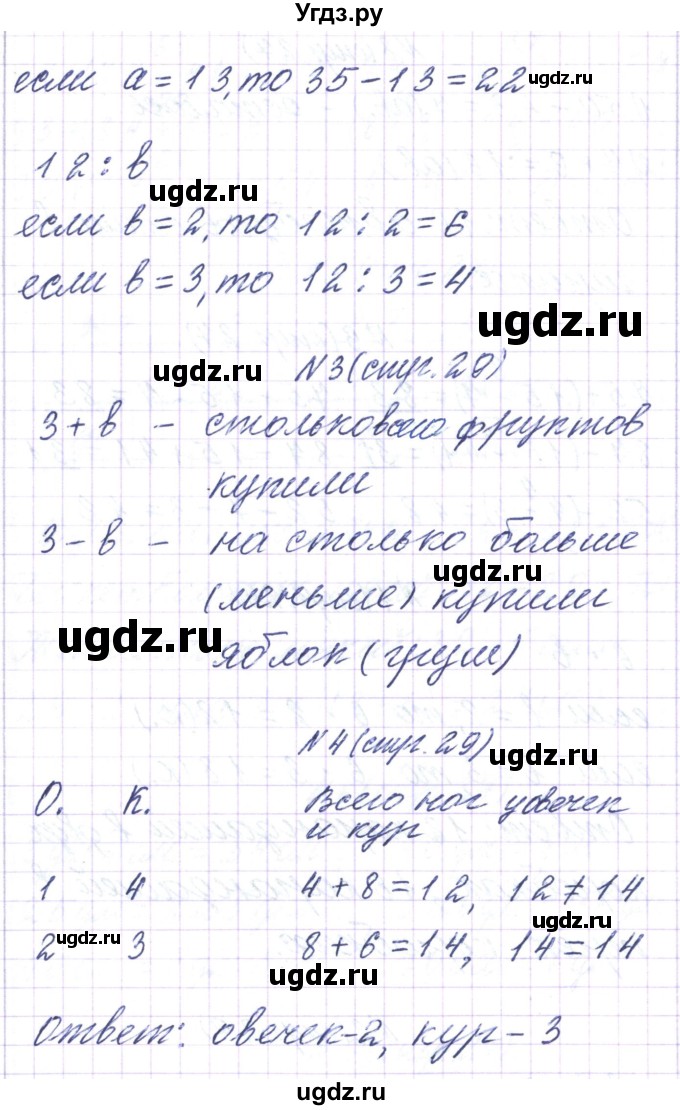 Угдз.ру
если а = 13, то 35 - 13 = 22 ugdz.ru
12 : в
ugdz.ru
если в = 2, то 12 : 2 = 6
если в = 3, то 12 : 3 = 4
ugdz.ru
ugdz.ru N3 (стр. 29)
3 + в - столько всего фруктов
купили
3 - в - на столько больше
ugdz.ru
(меньше) купили
ugdz.ru
яблок (груш)
N4 (стр. 29) ugdz.ru
О. К. Всего ног у овечек
и кур
1 4 4 + 8 = 12, 12 ≠ 14
ugdz.ru
2 ugdz.ru 3 8 + 6 = 14, 14 = 14
ugdz.ru
Ответ: овечек - 2, кур - 3
ugdz.ru